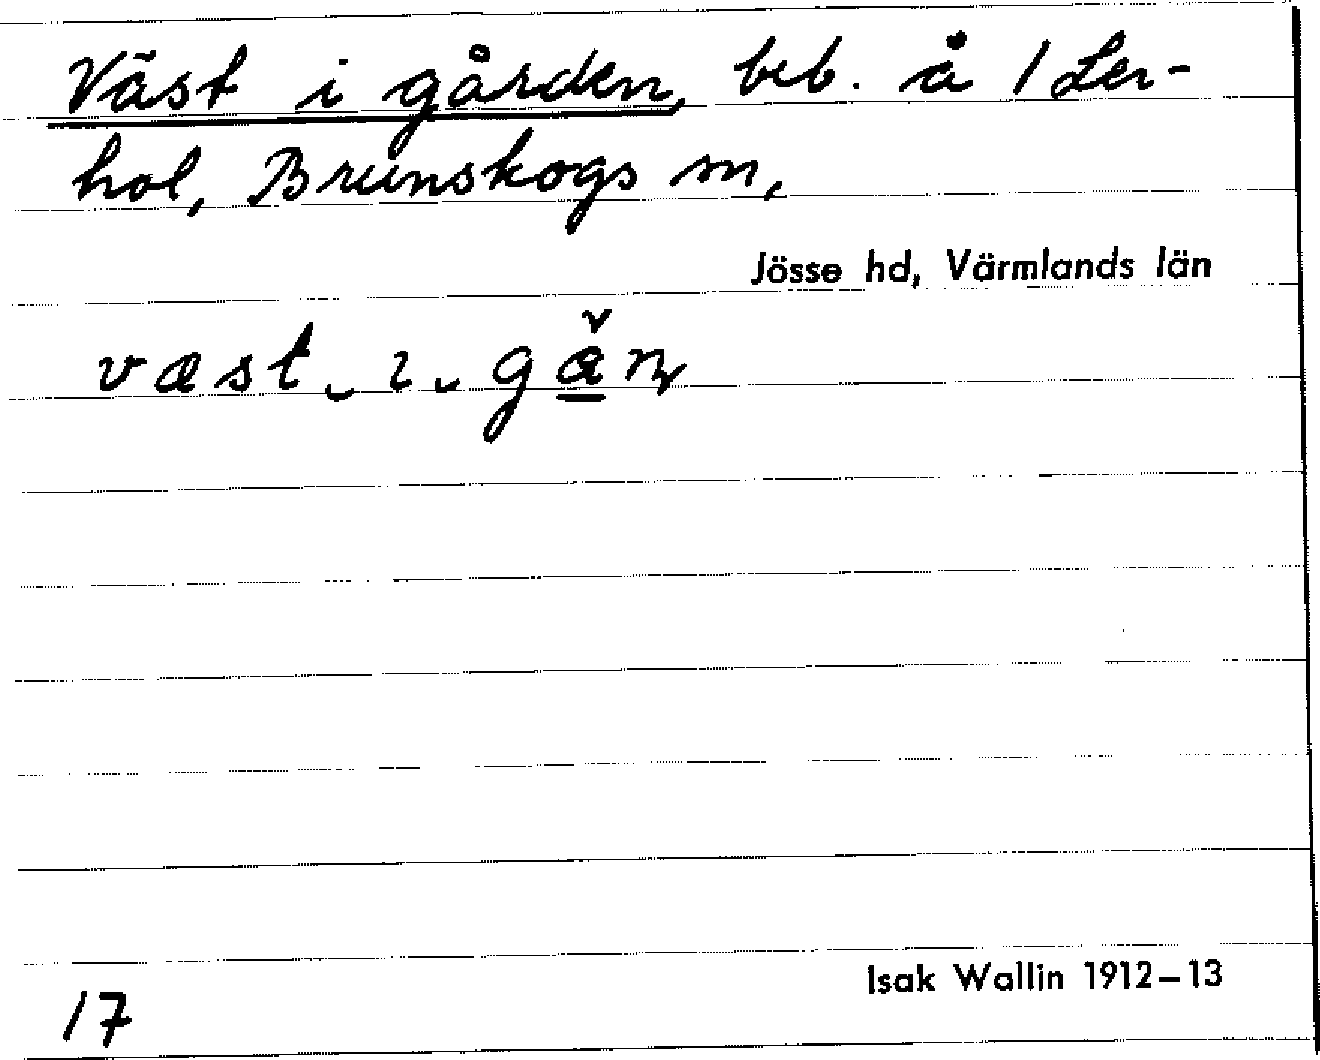 Väst i gården, beb. å 1 Ler-
hol, Brunskogs sn,
Jösse hd, Värmlands län
væst ‿ ı ‿ gå̱̌ɳ
Isak Wallin 1912–13
17